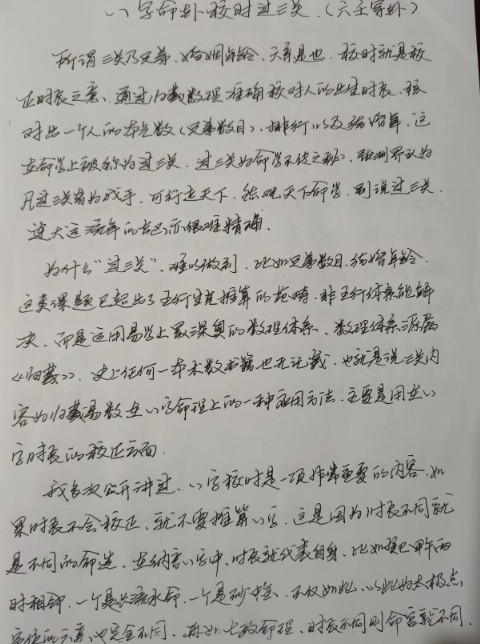 八字命卦校时过三关（六壬寄卦）
所谓三关乃兄弟、婚姻年龄、六亲是也，校时就是校
正时辰之意，通过归藏数理准确核对人的出生时辰，核
对出一个人的本先数（兄弟数目），排行以及结婚年，这
在命学上被称为过三关，过三关为命学不传之秘，预测界认为
凡过三关者为成手，可行走天下，综观天下命学，别说过三关，
连大运流年的起亦很难精确。
为什么“过三关”，难以做到，比如兄弟数目，结婚年龄，
这类课题已超出了五行生克推算的范畴，非五行体系能解
决，而是运用易学上最深奥的数理体系，数理体系源属
《归藏》，史上任何一本术数书籍也无记载，也就是说三关内
容为归藏易数在八字命理上的一种应用方法，主要是用在八
字时辰的校正方面
我多次公开讲过，八字校时是一项非常重要的内容，如
果时辰不会校正，就不要推算八字，这是因为时辰不同就
是不同的命造，在纳音八字中，时辰就代表自身，比如癸巳甲午两
时相邻，一个是长流水命，一个是砂中金，不仅如此，以此为太极点
也完全不同，再如七政命理，时辰不同则命宫就不同，